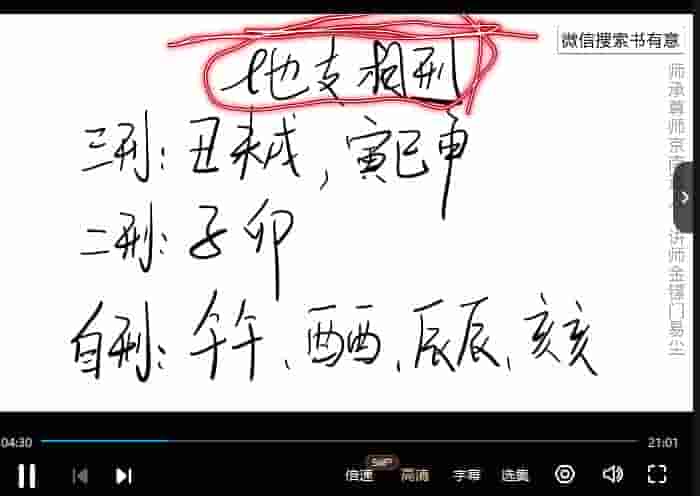 地支相刑
微信搜索书有意
三刑：丑未戌，寅巳申
二刑：子卯
自刑：午午、酉酉、辰辰、亥亥
师承尊师京南
讲师金镖门易尘
04:30
21:01
倍速
SVIP
高清
字幕
选集